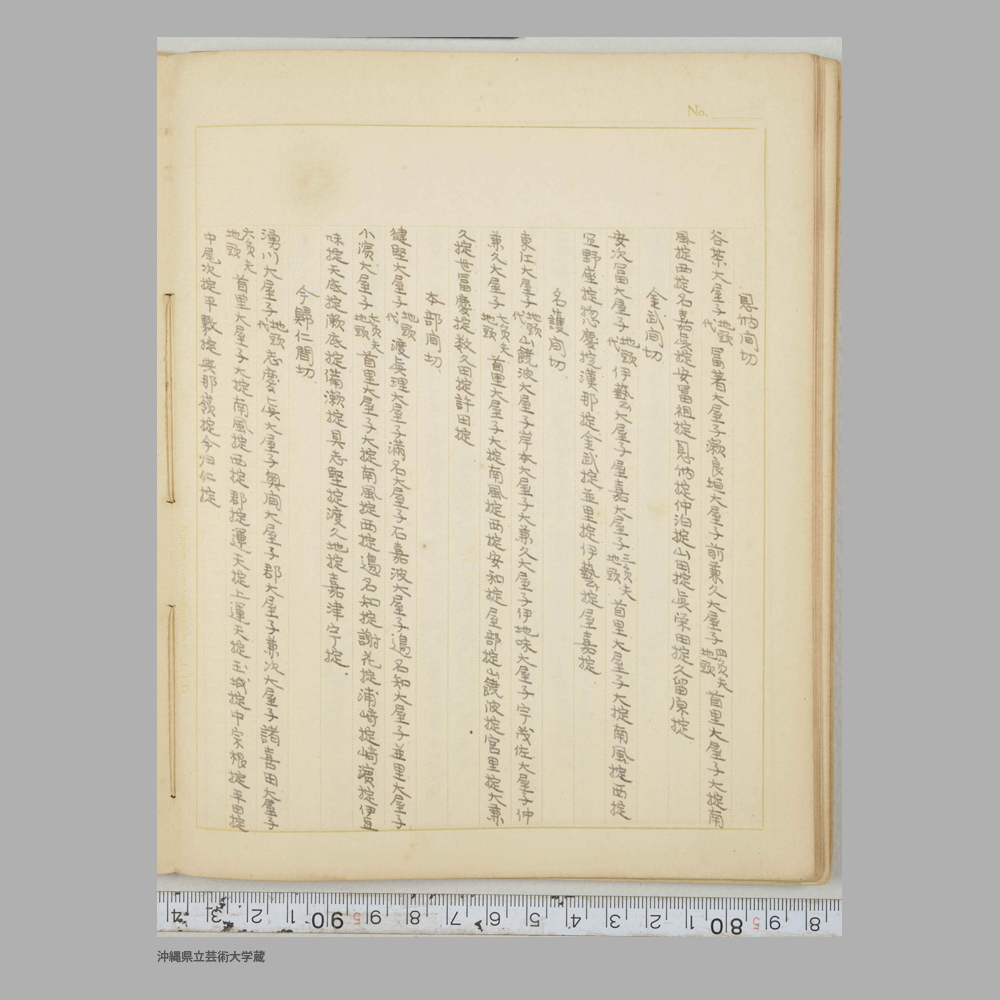 No.
恩納間切
谷茶大屋子地頭代冨著大屋子瀬良垣大屋子前兼久大屋子四員夫地頭首里大屋子大掟南
風掟西掟名嘉眞掟安冨祖掟恩納掟仲泊掟山田掟眞栄田掟久留原掟
金武間切
安次冨大屋子地頭代伊藝大屋子屋嘉大屋子三員夫地頭首里大屋子大掟南風掟西掟
宜野座掟惣慶掟漢那掟金武掟並里掟伊藝掟屋嘉掟
名護間切
東江大屋子地頭代山饒波大屋子岸本大屋子大兼久大屋子伊地味大屋子宇茂佐大屋子仲
兼久大屋子七員夫地頭首里大屋子大掟南風掟西掟安和掟屋部掟山饒波掟宮里掟大兼
久掟世冨慶掟数久田掟許田掟
本部間切
健堅大屋子地頭代渡眞理大屋子満名大屋子石嘉波大屋子邉名知大屋子並里大屋子
小濱大屋子七員夫地頭首里大屋子大掟南風掟西掟邉名知掟謝花掟浦崎掟崎濱掟伊豆
味掟天底掟瀬底掟備瀬掟具志堅掟渡久地掟嘉津宇掟.
今歸仁間切
湧川大屋子地頭代志慶眞大屋子奥間大屋子郡大屋子兼次大屋子諸喜田大屋子
六員夫地頭首里大屋子大掟南風掟西掟郡掟運天掟上運天掟玉城掟中宗根掟平田掟
中尾次掟平敷掟與那嶺掟今归仁掟
4 3 2 1 90 9 5 8 7 6 5 4 3 2 1 80 5 9 8
沖縄県立芸術大学蔵